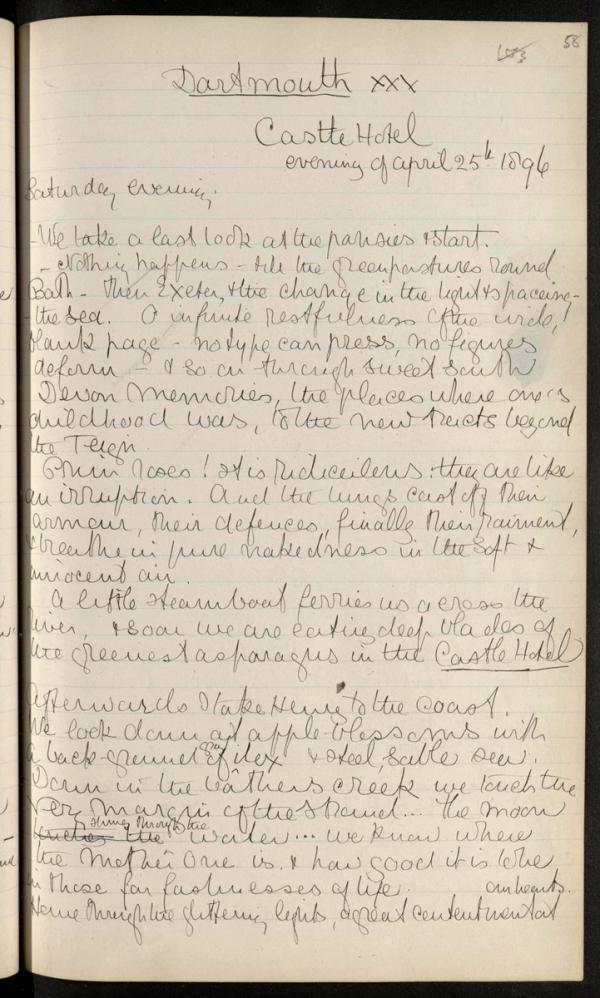 58
Dartmouth xxx
Castle Hotel
evening of april 25th 1896
Saturday evening.
- We take a last look at the pansies & start.
- Nothing happens - till the green pastures round
Bath - then Exeter, & the change in the light & spaceing -
the sea. O infinite restfulness of the wide,
blank page - no type can press, no figures
deform - & so on through sweet south
Devon memories, the places where one's
childhood was, to the new tracts beyond
the Teign.
Primroses! It is ridiculous: they are like
an irruption. And the lungs cast off their
armour, their defences, finally their raiment,
& breathe in pure nakedness in the soft &
innocent air.
A little steamboat ferries us across the
river, & soon we are eating deep blades of
the greenest asparagus in the Castle Hotel
Afterwards I take Henie to the coast.
We look down at apple-blossoms with
a back-ground of ilex & steel, sable sea.
Down in the bather's creek we touch the
very margin of the strand... The moon
touches the shines through the water... we know where
the Mother One is & how good it is to be
in those far fastnesses of life.
Home through the glittering lights, a great contentment at
our hearts.